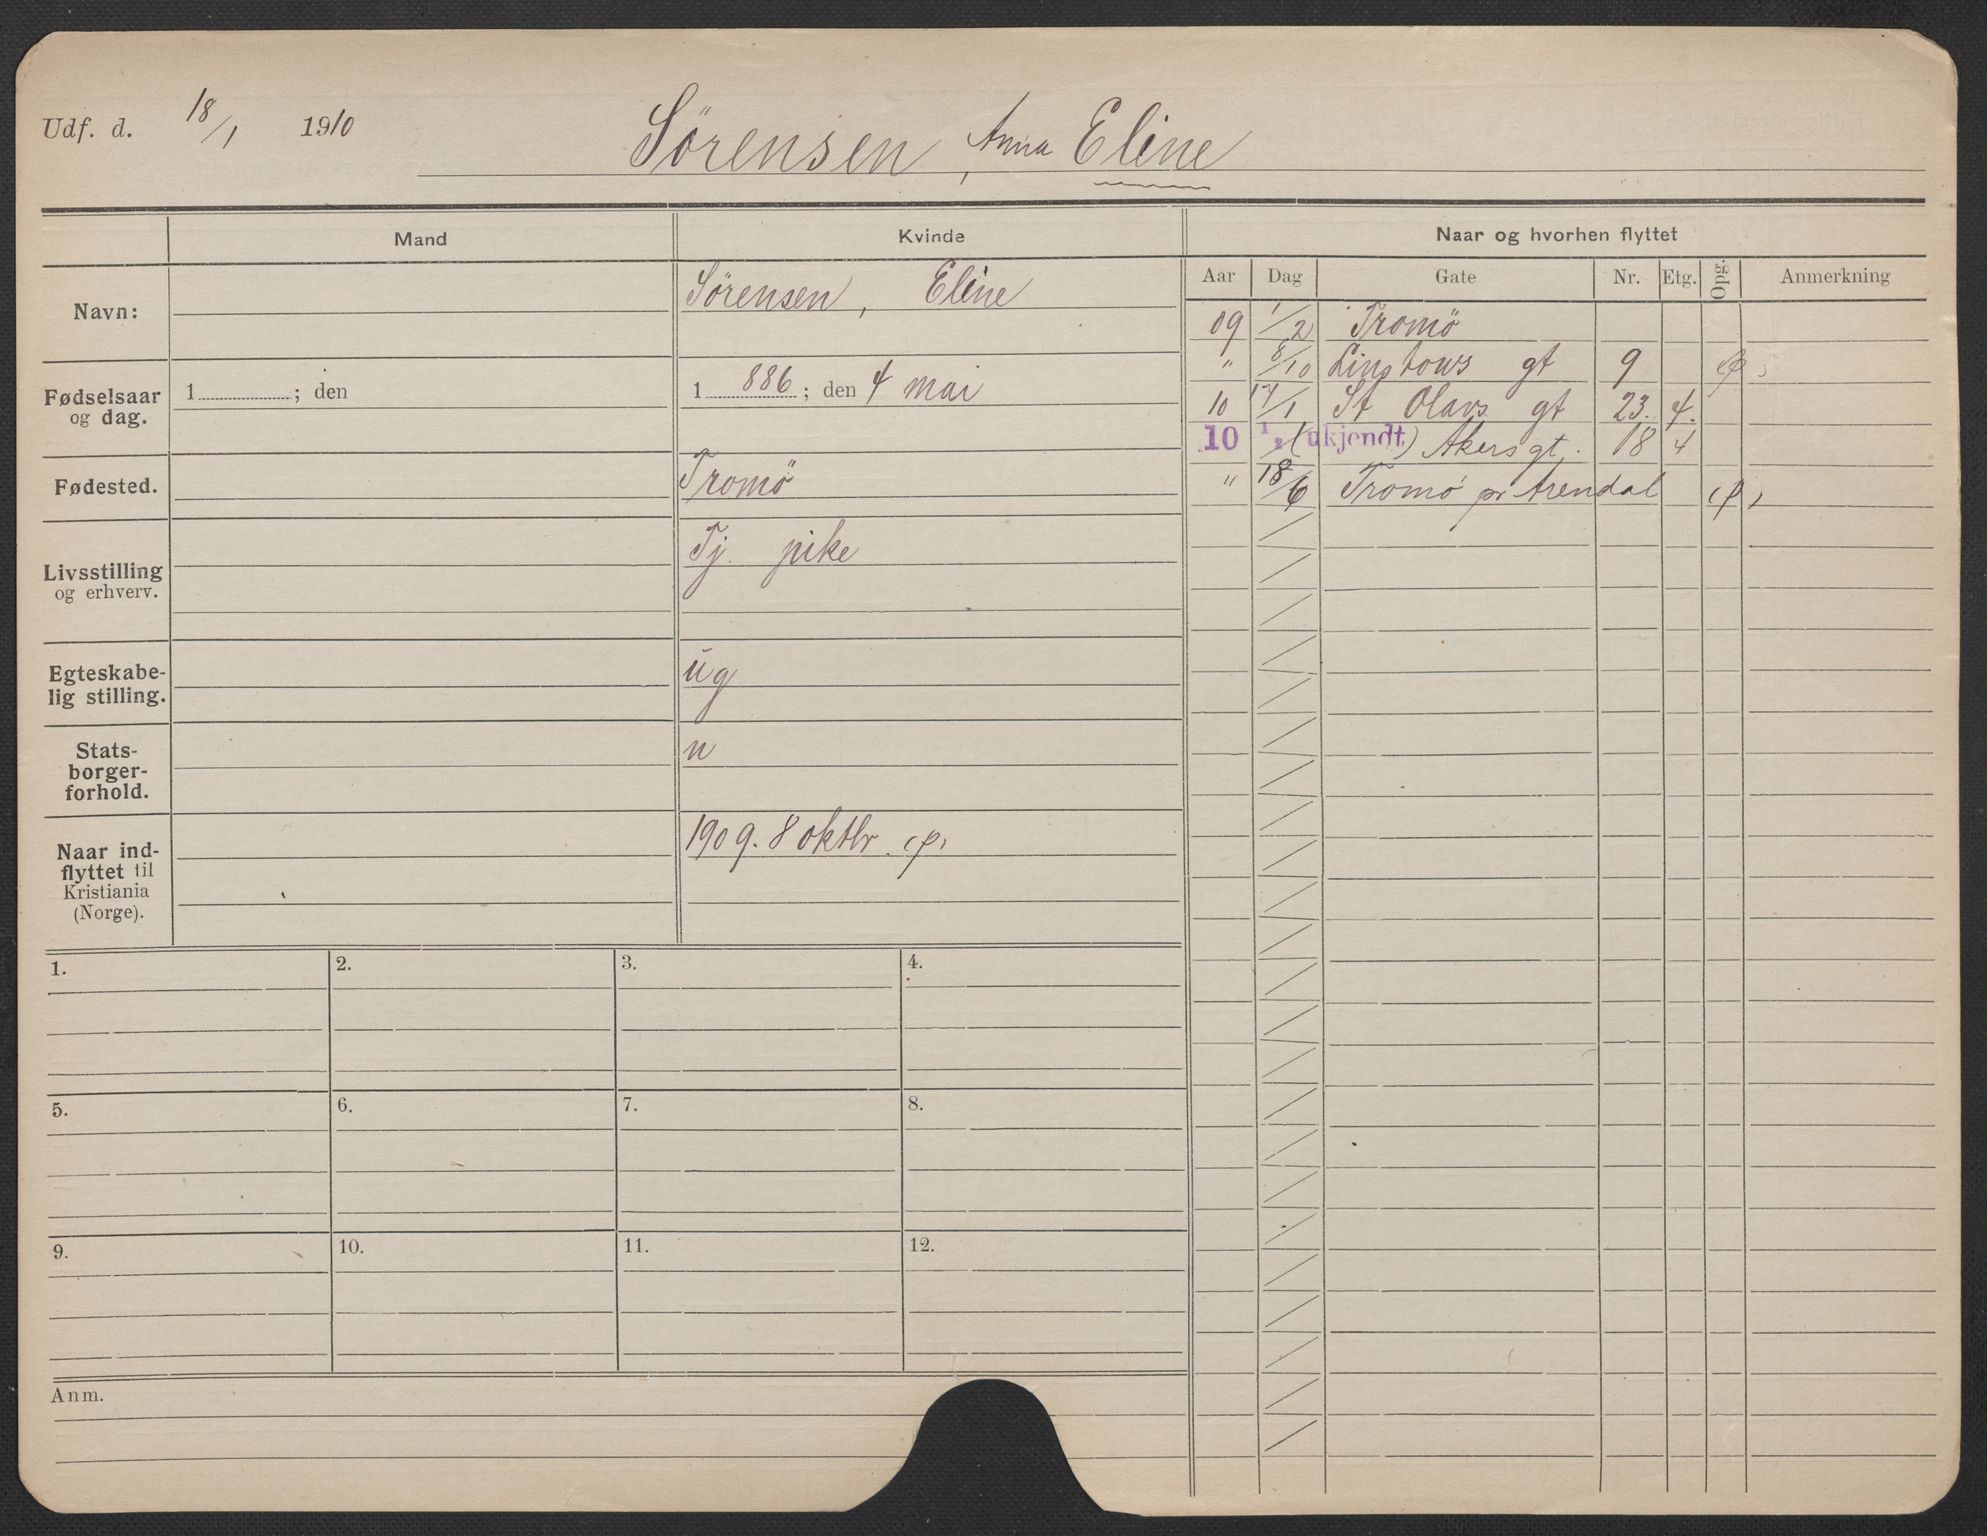 Udf. d. 18/1 1910
Sörensen, Anna Eline
Mand Kvinde Naar og hvorhen flyttet
Aar Dag Gate Nr. Etg. Opg. Anmerkning
Navn: Sörensen, Eline
Fødselsaar og dag. 1 ; den 1 886 ; den 4 mai
Fødested. Tromö
Livsstilling og erhverv. Tj. pike
Egteskabe-
lig stilling. ug
Stats-
borger-
forhold. n
Naar ind-
flyttet til
Kristiania
(Norge). 1909. 8 oktbr.
09 1/2 Tromö
" 8/10 Linstows gt 9
10 17/1 St Olavs gt 23. 4.
10 1/2 (ukjendt) Akersgt. 18 4
" 18/6 Tromö pr Arendal
1. 2. 3. 4.
5. 6. 7. 8.
9. 10. 11. 12.
Anm.